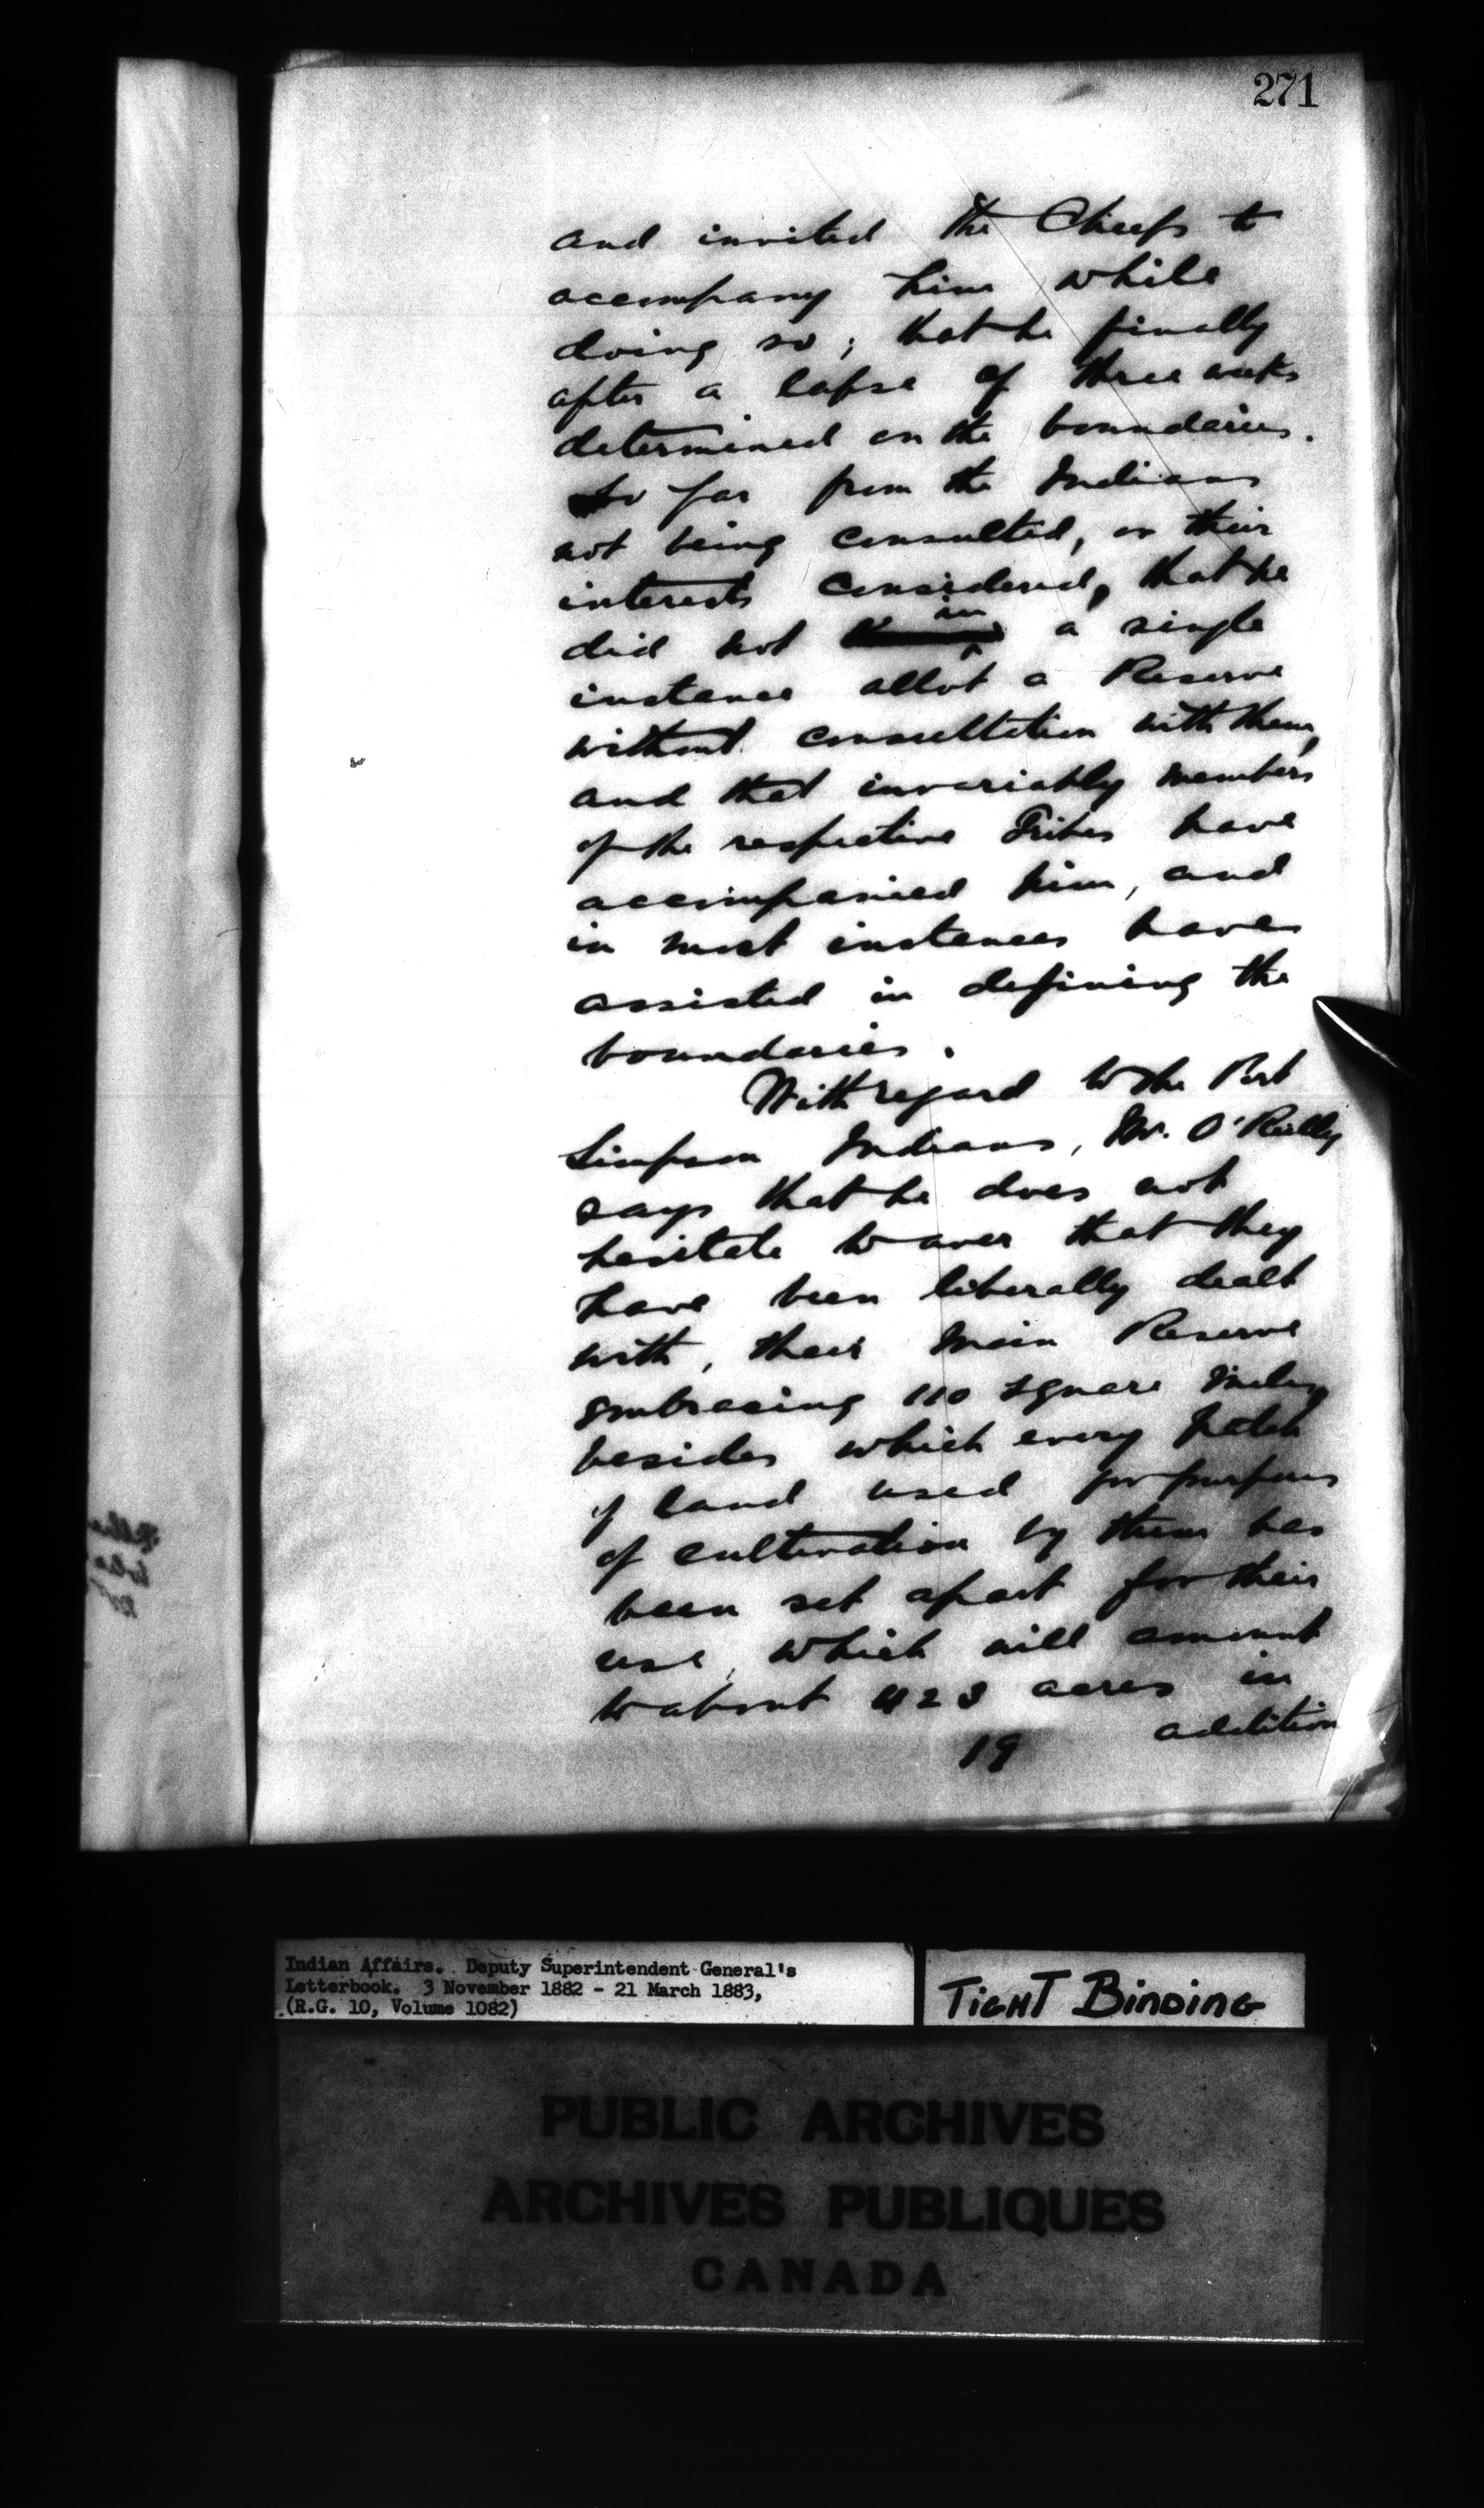 271
and invited the Chiefs to
accompany him while
doing so; that he finally
after a lapse of three weeks
determined on the boundaries.
So far from the Indians
not being consulted, or their
interests considered, that he
did not in a single
instance allot a Reserve
without consultation with them,
and that invariably members
of the respective Tribes have
accompanied him, and
in most instances have
assisted in defining the
boundaries.
With regard to the Port
Simpson Indians, Mr. O'Reilly
says that he does not
hesitate to aver that they
have been liberally dealt
with, their main Reserve
embracing 110 square miles,
besides which every patch
of land used for purposes
of cultivation by them has
been set apart for their
use, which will amount
to about 423 acres in
addition
19
Indian Affairs. Deputy Superintendent General's
Letterbook. 3 November 1882 - 21 March 1883,
(R.G. 10, Volume 1082)
TIGHT BINDING
PUBLIC ARCHIVES
ARCHIVES PUBLIQUES
CANADA